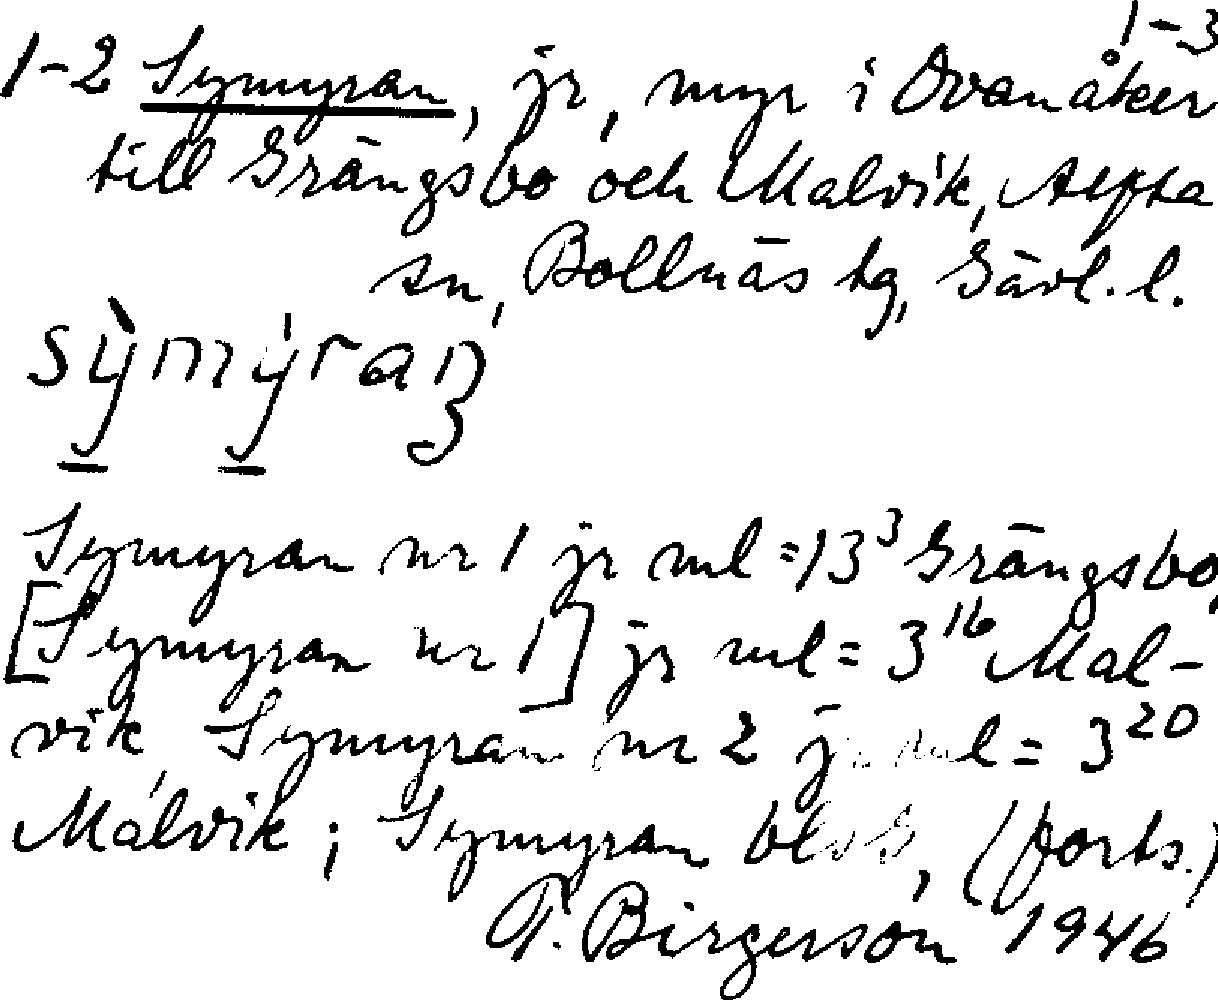 1-3
1-2 Symyran, jr, myr i Ovanåker
till Grängsbo och Malvik, Alfta
sn, Bollnäs tg, Gävl. l.
sỳ̠mý̠ran
Symyran nr 1 jr ml = 13³ Grängsbo,
[Symyran nr 1] jr ml = 3¹⁶ Mal-
vik, Symyran nr 2 jr ml = 3²⁰
Malvik; Symyran blvs, (forts.)
T. Birgerson 1946